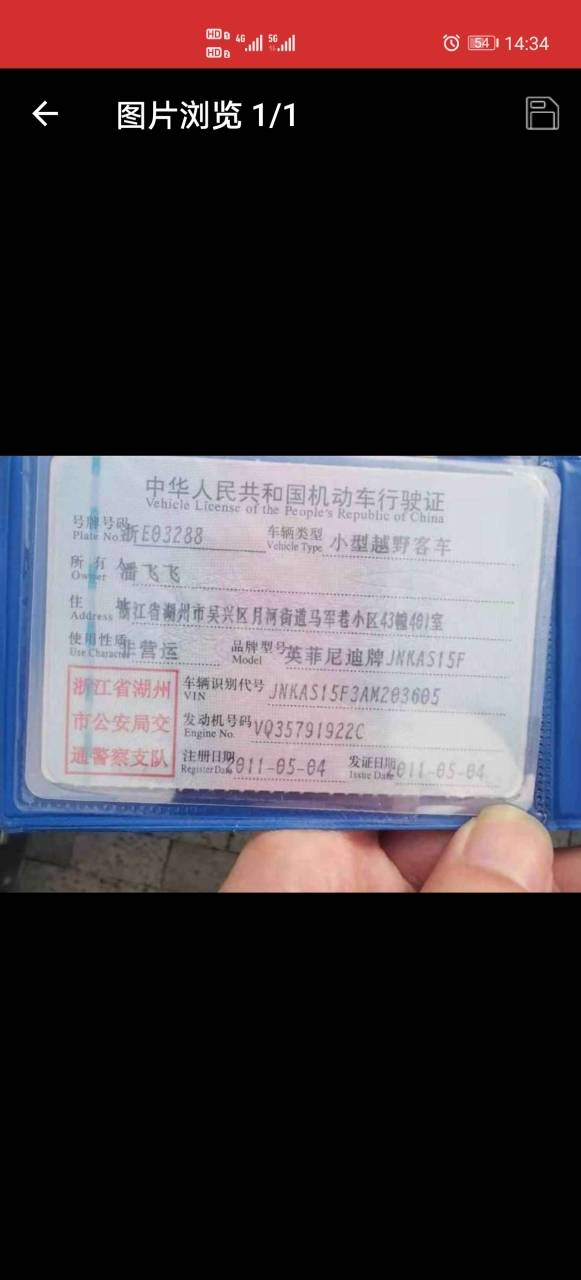 HD 1 4G 5G
HD 2
54 14:34
图片浏览 1/1
中华人民共和国机动车行驶证
Vehicle License of the People's Republic of China
号牌号码 浙E03288 车辆类型 小型越野客车
Plate No. Vehicle Type
所有人 潘飞飞
Owner
住址 浙江省湖州市吴兴区月河街道马军巷小区43幢401室
Address
使用性质 非营运 品牌型号 英菲尼迪牌JNKAS15F
Use Character Model
浙江省湖州
市公安局交
通警察支队
车辆识别代号 JNKAS15F3AM203605
VIN
发动机号码 VQ35791922C
Engine No.
注册日期 2011-05-04 发证日期 2011-05-04
Register Date Issue Date